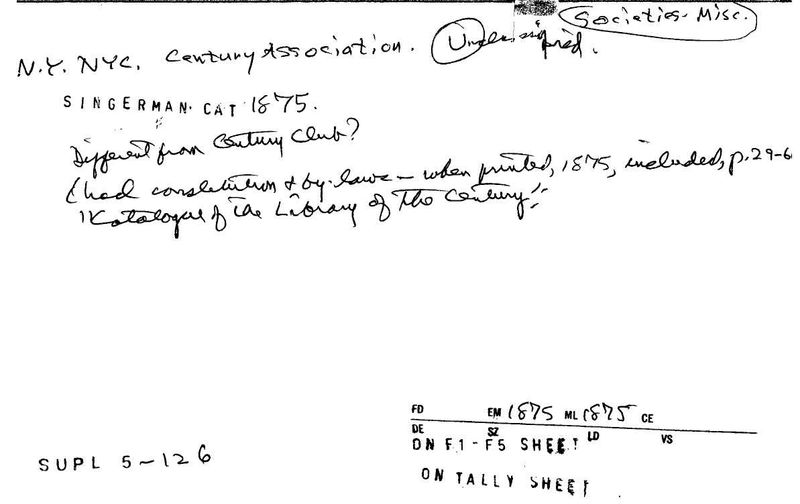 Societies - Misc.
N.Y. NYC. Century Association. Undersigned.
SINGERMAN CAT 1875.
Different from Century Club?
(had constitution & by-laws – when printed, 1875, included, p.29-6
"Katalogue of the Library of The Century"
FD EM 1875 ML 1875 CE
DE SZ LD VS
ON F1-F5 SHEET
SUPL 5-126
ON TALLY SHEET